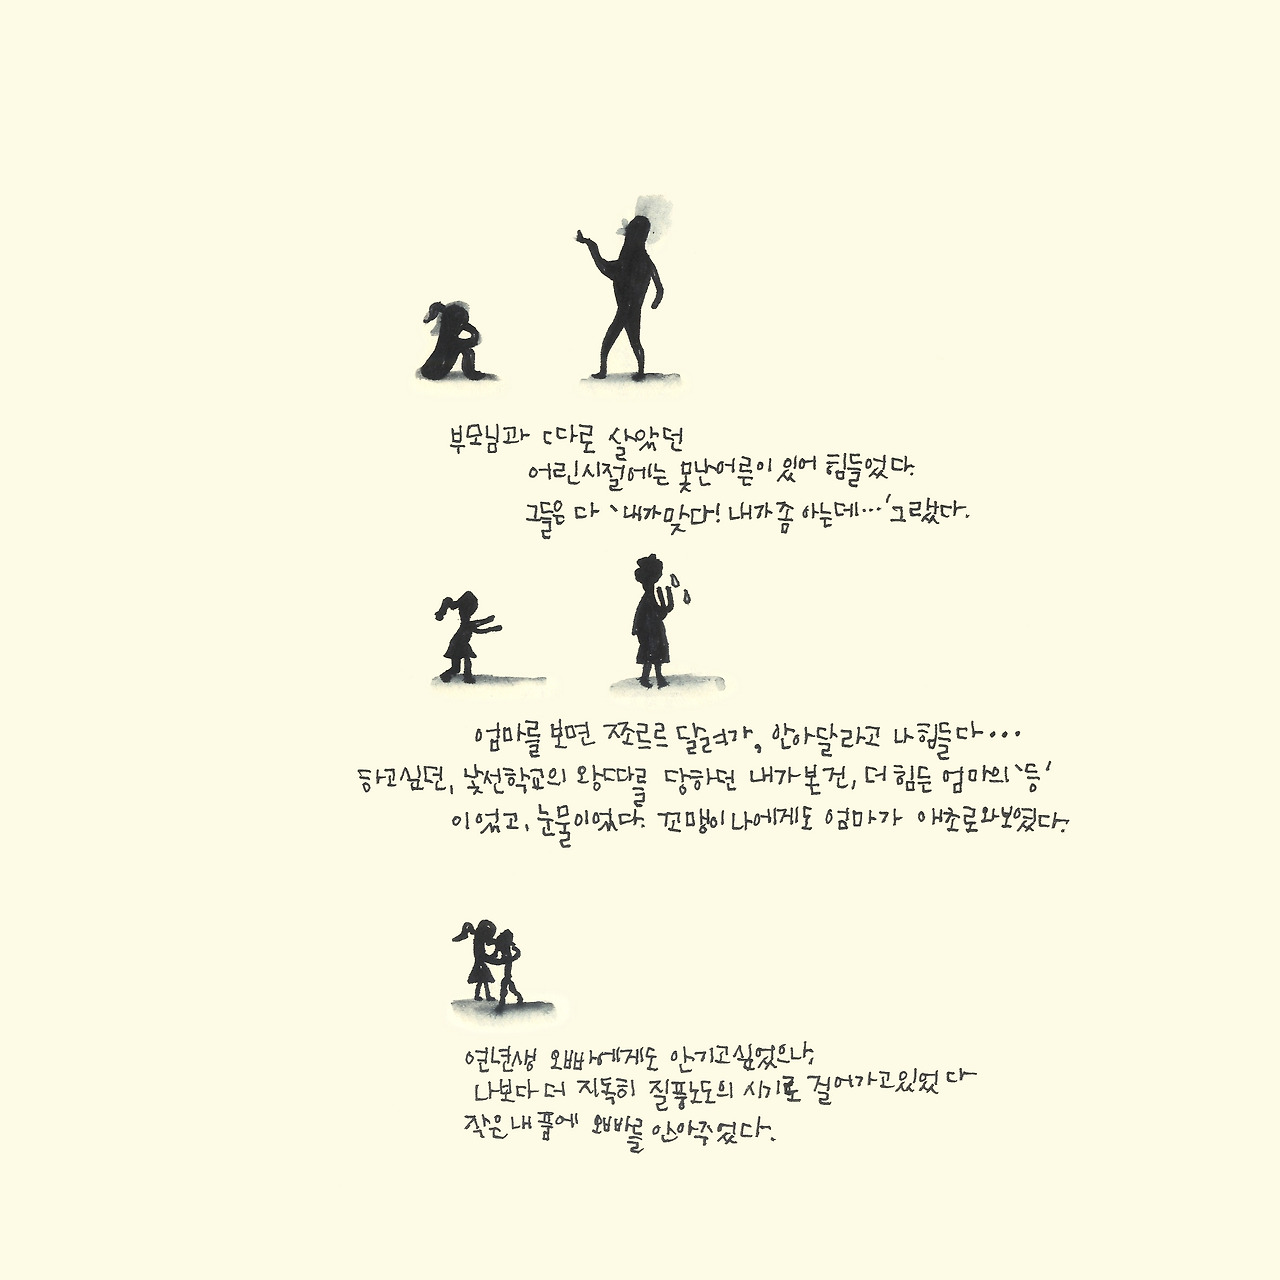 부모님과 따로 살았던
어린시절에는 못난어른이 있어 힘들었다.
그들은 다 '내가맞다! 내가좀 아는데…'그랬다.
엄마를 보면 쪼르르 달려가, 안아달라고 나 힘들다...
하고싶던, 낯선학교의 왕따를 당하던 내가 본건, 더 힘든 엄마의 '등'
이었고, 눈물이었다. 꼬맹이 나에게도 엄마가 애초로와보였다.
연년생 오빠에게도 안기고싶었으나,
나보다 더 지독히 질풍노도의 시기로 걸어가고있었다
작은 내 품에 오빠를 안아주었다.